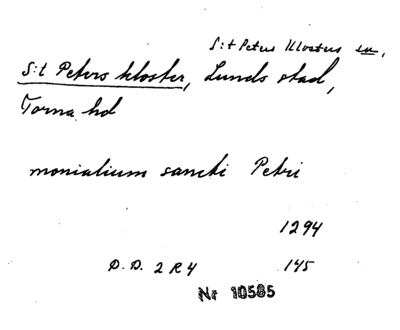 S:t Peters Klosters
S:t Peters kloster, Lunds stad,
Torna hd
monialium sancti Petri
1294
D.D. 2 R 4 145
Nr 10585